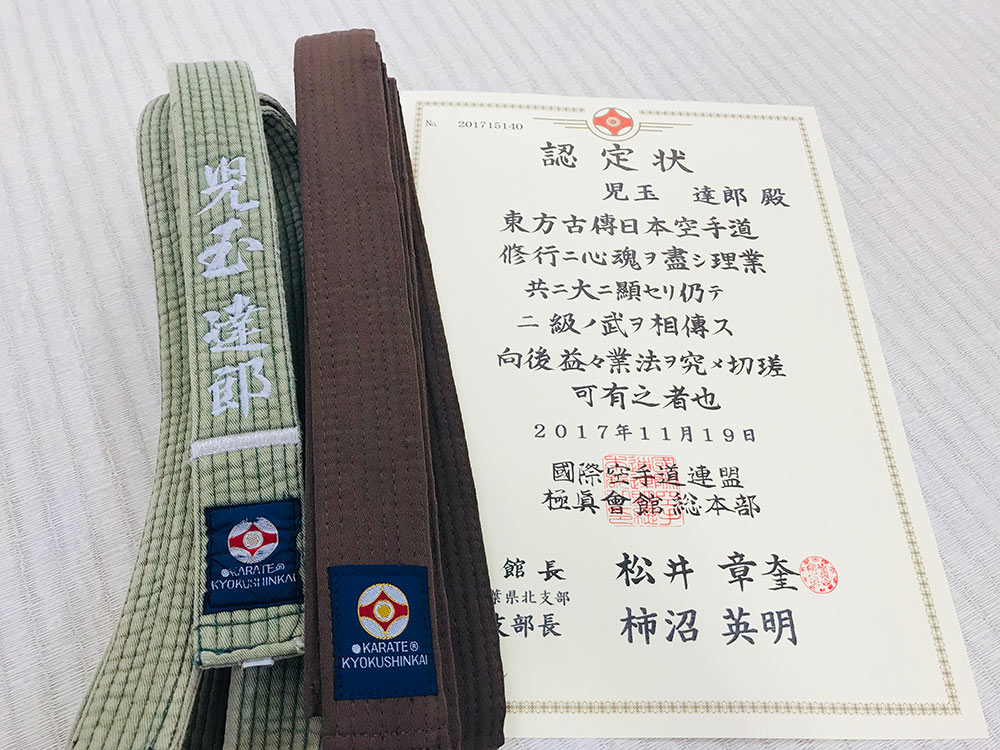 児玉 達郎
●KARATE®
KYOKUSHINKAI
●KARATE®
KYOKUSHINKAI
No. 201715140
認定状
児玉 達郎 殿
東方古傳日本空手道
修行ニ心魂ヲ盡シ理業
共ニ大ニ顯セリ仍テ
二級ノ武ヲ相傳ス
向後益々業法ヲ究メ切瑳
可有之者也
2017年11月19日
國際空手道連盟
極眞會館総本部
館長 松井 章奎
葉県北支部
支部長 柿沼 英明